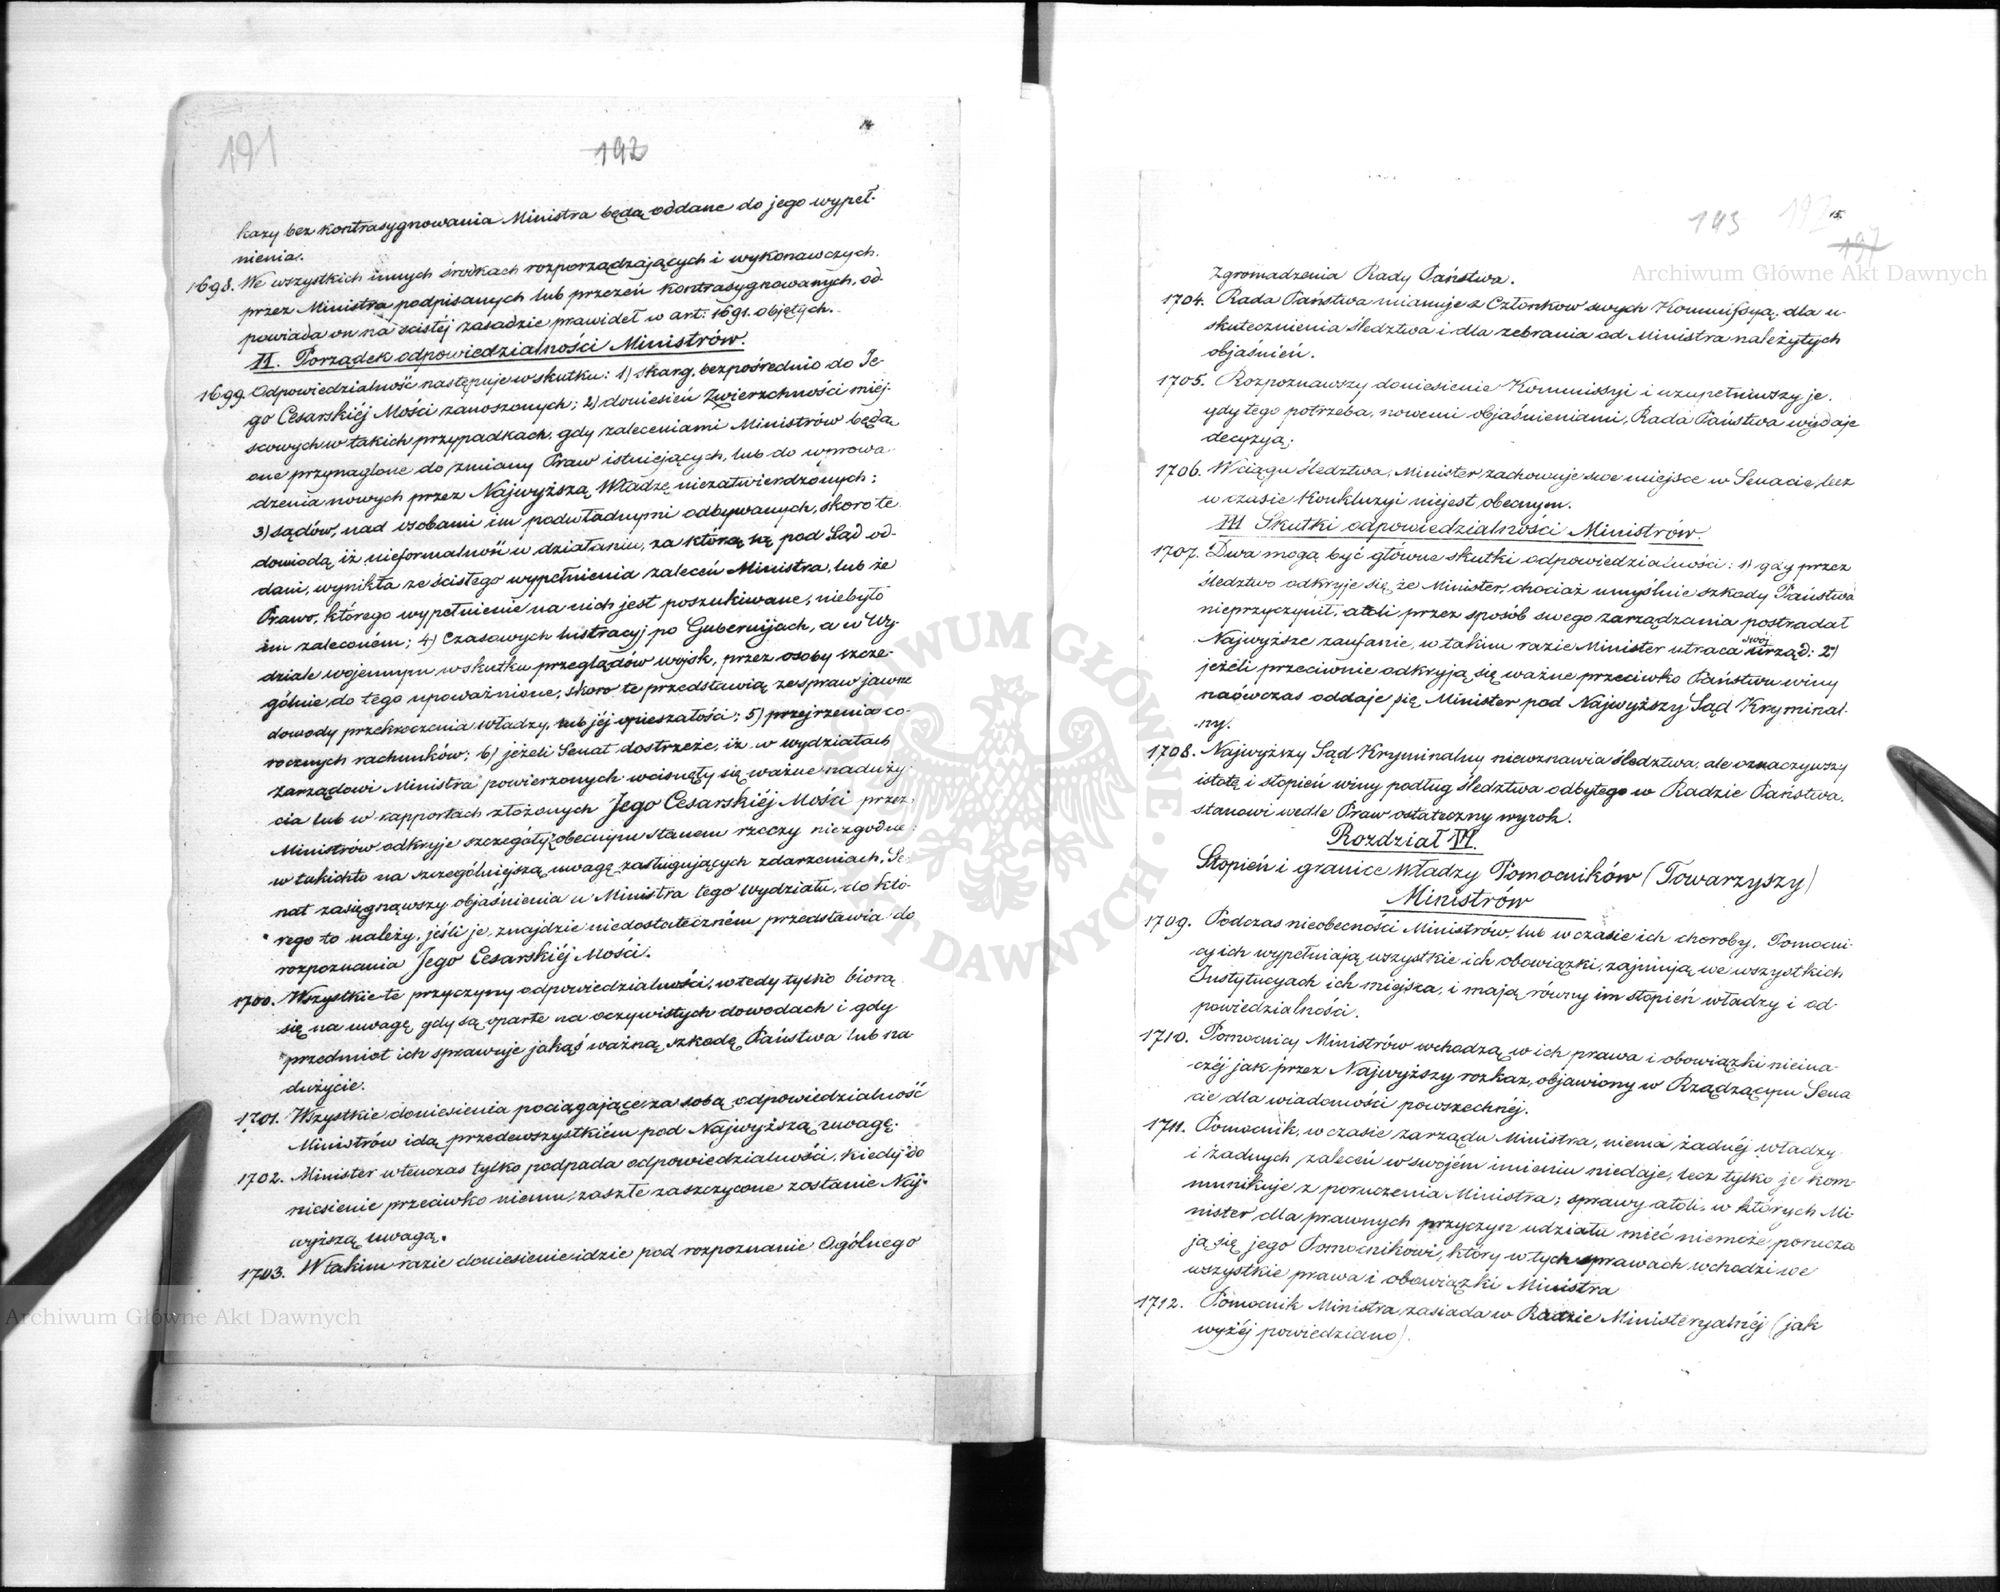 191
192
14
kazy bez kontrasygnowania Ministra będą oddane do jego wypeł-
nienia.
1698. We wszystkich innych środkach rozporządzających i wykonawczych.
przez Ministra podpisanych lub przezeń kontrasygnowanych, od-
powiada on na ścisłéj zasadzie prawideł w art: 1691. objętych.
II. Porządek odpowiedzialności Ministrów.
1699. Odpowiedzialność następuje w skutku: 1) skarg, bezpośrednio do Je-
go Cesarskiéj Mości zanoszonych; 2) doniesień Zwierzchności miéj-
scowych w takich przypadkach, gdy zaleceniami Ministrów będą
one przynaglone do zmiany Praw istniejących, lub do wprowa-
dzenia nowych przez Najwyższą Władzę niezatwierdzonych;
3) sądów, nad osobami im podwładnymi odbywanych, skoro te
dowiodą, iż nieformalność w działaniu, za którą są pod Sąd od-
dani, wynikła ze ścisłego wypełnienia zaleceń Ministra, lub że
Prawo, którego wypełnienie na nich jest poszukiwane, niebyło
im zaleconém; 4) Czasowych lustracyj po Gubernijach, a w Wy-
dziale wojennym w skutku przeglądów wojsk, przez osoby szcze-
gólnie do tego upoważnione, skoro te przedstawią ze spraw jawne
dowody przekroczenia władzy, lub jéj opieszałości; 5) przejrzenia co-
rocznych rachunków; 6) jeżeli Senat dostrzeże, iż w wydziałach
zarządowi Ministra powierzonych wcisnęły się ważne naduży-
cia lub w rapportach złożonych Jego Cesarskiéj Mości przez
Ministrów odkryje szczegóły z obecnym stanem rzeczy niezgodne:
w takichto na szczególniejszą uwagę zasługujących zdarzeniach, Se-
nat zasięgnąwszy objaśnienia u Ministra tego wydziału, do któ-
rego to należy, jeśli je znajdzie niedostateczném przedstawia do
rozpoznania Jego Cesarskiéj Mości.
1700. Wszystkie te przyczyny odpowiedzialności, wtedy tylko biorą
się na uwagę gdy są oparte na oczywistych dowodach i gdy
przedmiot ich sprawuje jakąś ważną szkodę Państwa lub na-
dużycie.
1701. Wszystkie doniesienia pociągające za sobą odpowiedzialność
Ministrów idą przedewszystkiém pod Najwyższą uwagę.
1702. Minister wtenczas tylko podpada odpowiedzialności, kiedy do-
niesienie przeciwko niemu zaszłe zaszczycone zostanie Naj-
wyższą uwagą.
1703. W takim razie doniesienie idzie pod rozpoznanie Ogólnego
193
192
15.
197
Zgromadzenia Rady Państwa.
1704. Rada Państwa mianuje z Członków swych Kommissyą, dla u-
skutecznienia śledztwa i dla zebrania od Ministra należytych
objaśnień.
1705. Rozpoznawszy doniesienie Kommissyi i uzupełniwszy je,
gdy tego potrzeba, nowemi objaśnieniami, Rada Państwa wydaje
decyzyą;
1706. W ciągu śledztwa, Minister, zachowuje swe miejsce w Senacie, lecz
w czasie Konkluzyi niejest obecnym.
III Skutki odpowiedzialności Ministrów.
1707. Dwa mogą być główne skutki odpowiedzialności: 1) gdy przez
śledztwo odkryje się, że Minister, chociaż umyślnie szkody Państwa
nieprzyczynił, atoli przez sposób swego zarządzania postradał
Najwyższe zaufanie, w takim razie Minister utraca swój urząd: 2)
jeżeli przeciwnie odkryją się ważne przeciwko Państwu winy
naówczas oddaje się Minister pod Najwyższy Sąd Kryminal-
ny.
1708. Najwyższy Sąd Kryminalny niewznawia śledztwa, ale oznaczywszy
istotę i stopień winy podług śledztwa odbytego w Radzie Państwa,
stanowi wedle Praw ostateczny wyrok.
Rozdział VI.
Stopień i granice władzy Pomocników (Towarzyszy)
Ministrów
1709. Podczas nieobecności Ministrów, lub w czasie ich choroby, Pomocni-
cy ich wypełniają wszystkie ich obowiązki, zajmują we wszystkich
Instytucyach ich miejsca, i mają równy im stopień władzy i od-
powiedzialności.
1710. Pomocnicy Ministrów wchodzą w ich prawa i obowiązki nieina-
czéj jak przez Najwyższy rozkaz, objawiony w Rządzącym Sena-
cie dla wiadomości powszechnéj.
1711. Pomocnik, w czasie zarządu Ministra, niema żadnéj władzy
i żadnych zaleceń w swojém imieniu niedaje, lecz tylko je kom-
munikuje z poruczenia Ministra; sprawy atoli, w których Mi-
nister dla prawnych przyczyn udziału mieć niemoże, porucza-
ją się jego Pomocnikowi, który w tych sprawach wchodzi we
wszystkie prawa i obowiązki Ministra
1712. Pomocnik Ministra zasiada w Radzie Ministeryalnéj (jak
wyżéj powiedziano).
Archiwum Główne Akt Dawnych
Archiwum Główne Akt Dawnych
ARCHIWUM GŁÓWNE AKT DAWNYCH